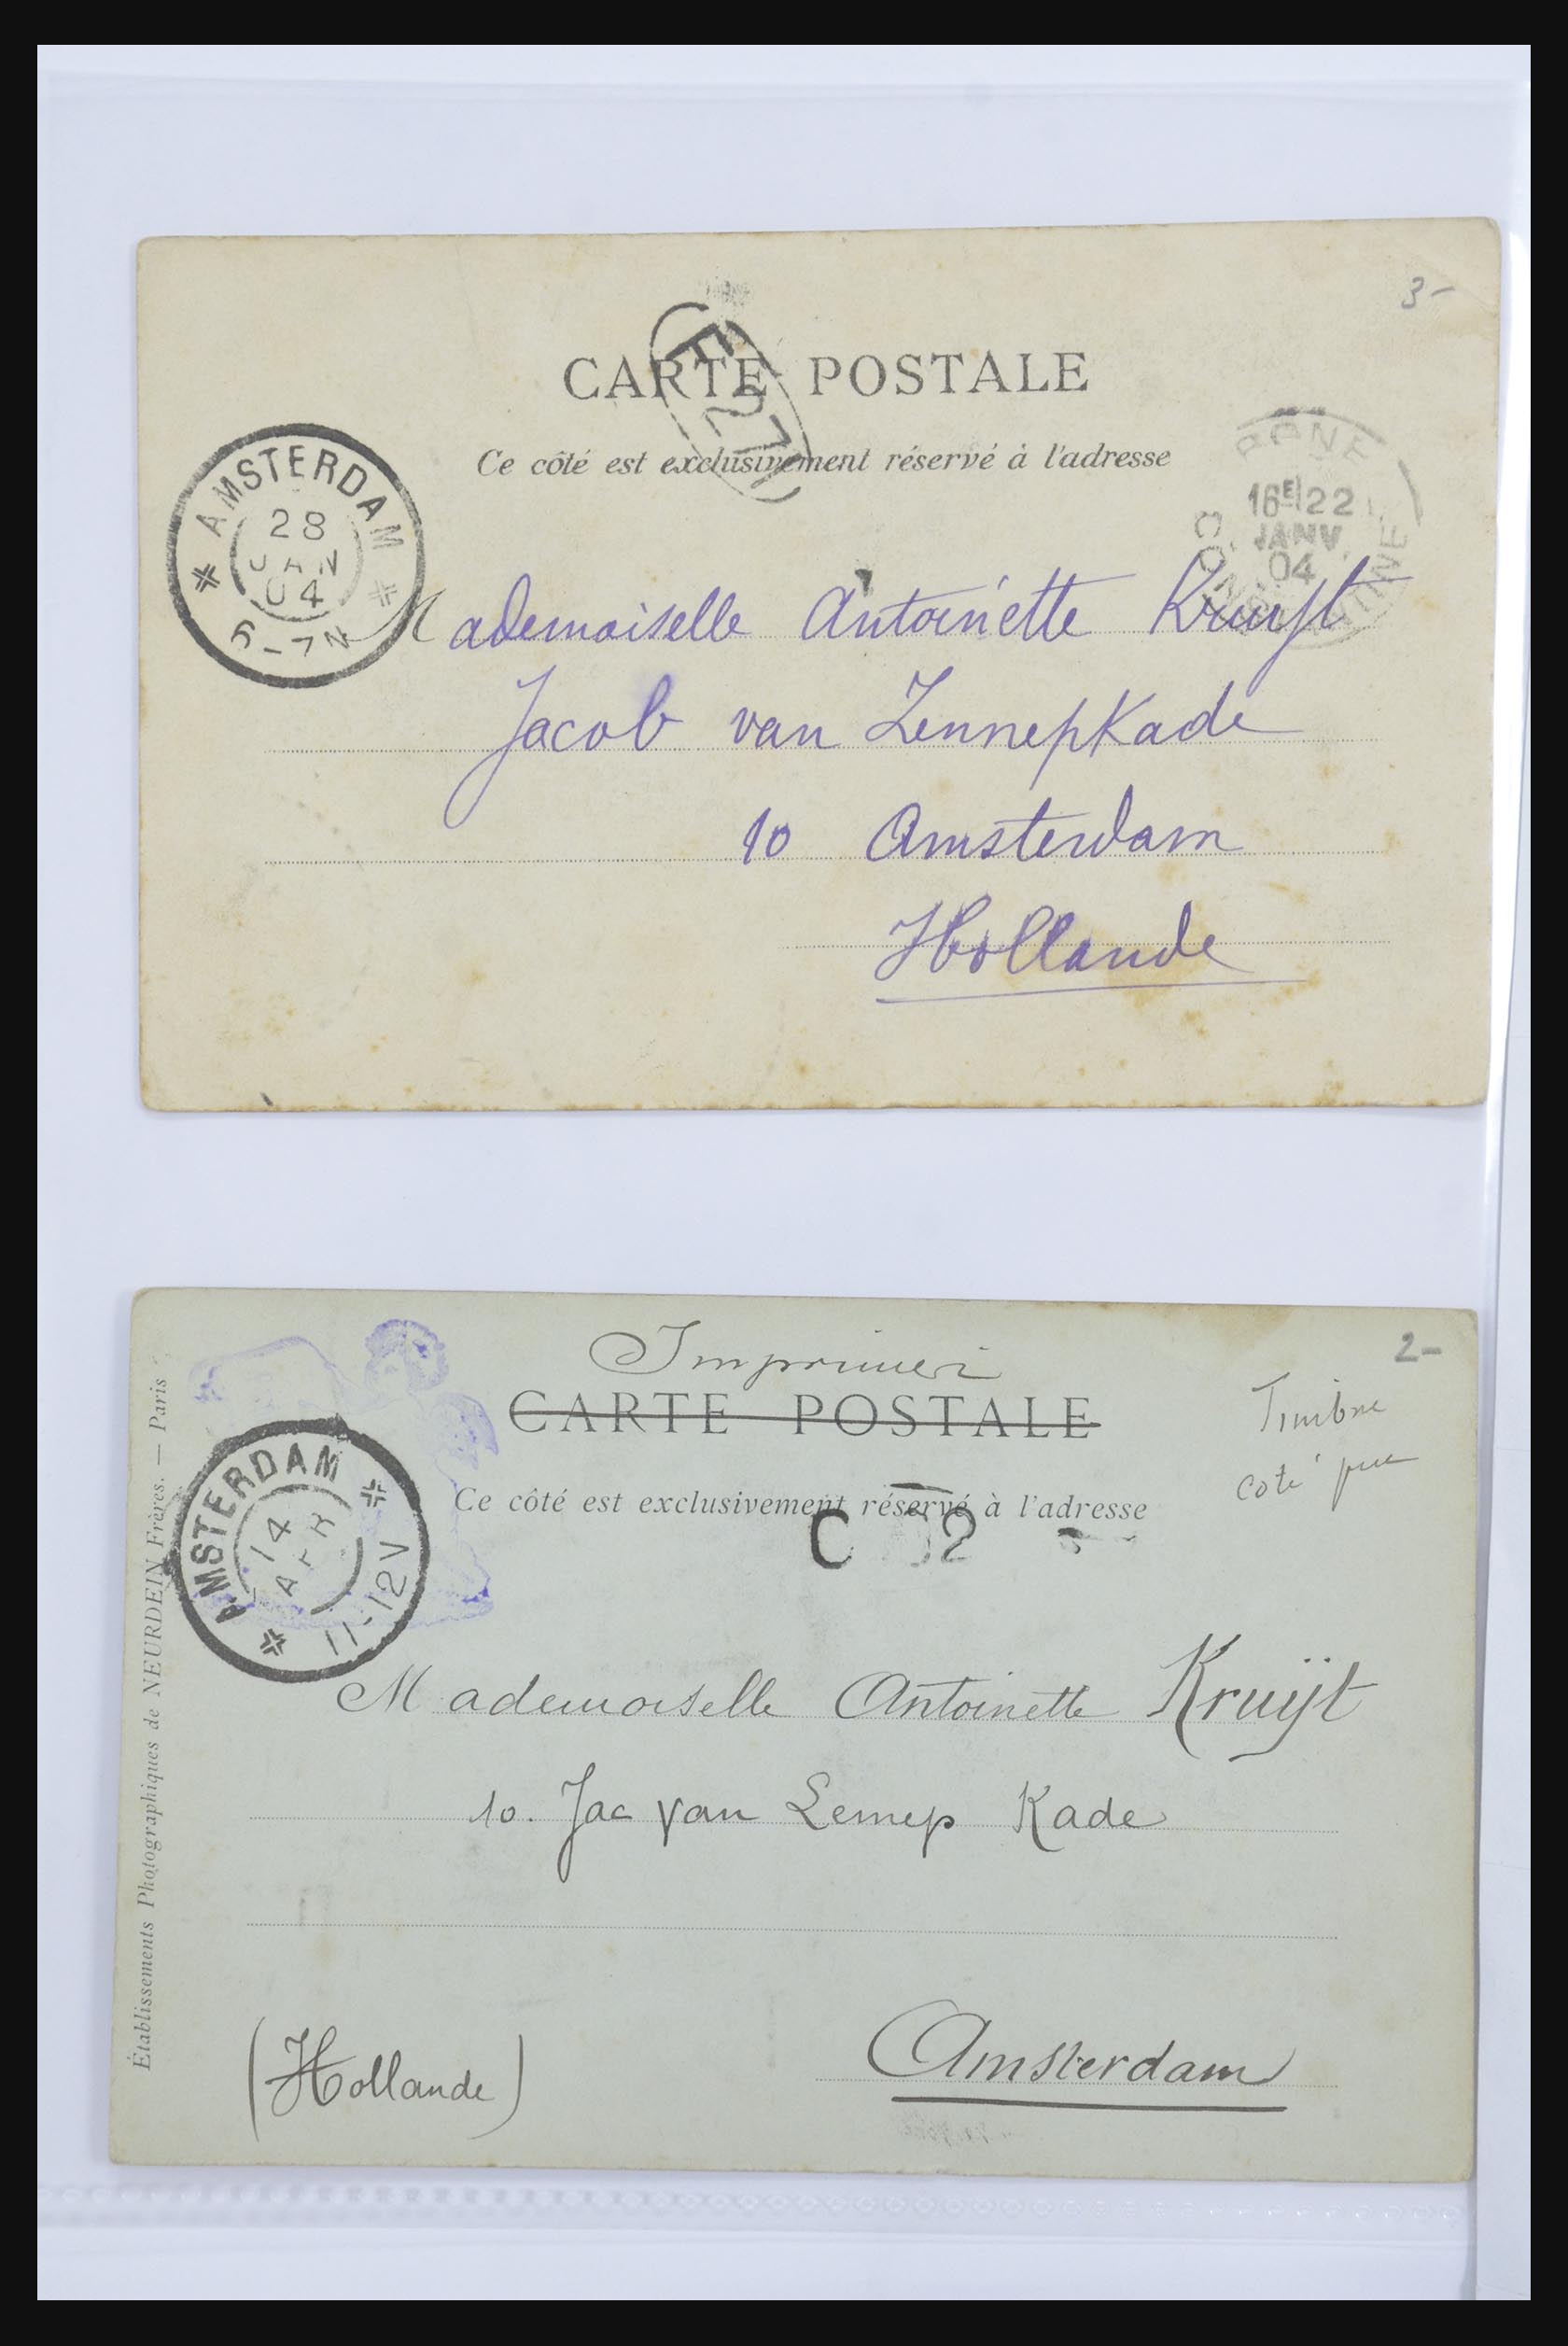 3-
CARTE POSTALE
Ce côté est exclusivement réservé à l'adresse
AMSTERDAM
28
JAN
04
5-7N
BONE
16E 22
JANV.
04
CONSTANTINE
Mademoiselle Antoinette Kruyt
Jacob van Lennepkade
10 Amsterdam
Hollande
2-
Imprimé
CARTE POSTALE
Timbre
coté vue
Ce côté est exclusivement réservé à l'adresse
AMSTERDAM
14
APR
11-12V
C 2
Mademoiselle Antoinette Kruÿt
10. Jac van Lennep Kade
(Hollande)
Amsterdam
Établissements Photographiques de NEURDEIN Frères. — Paris